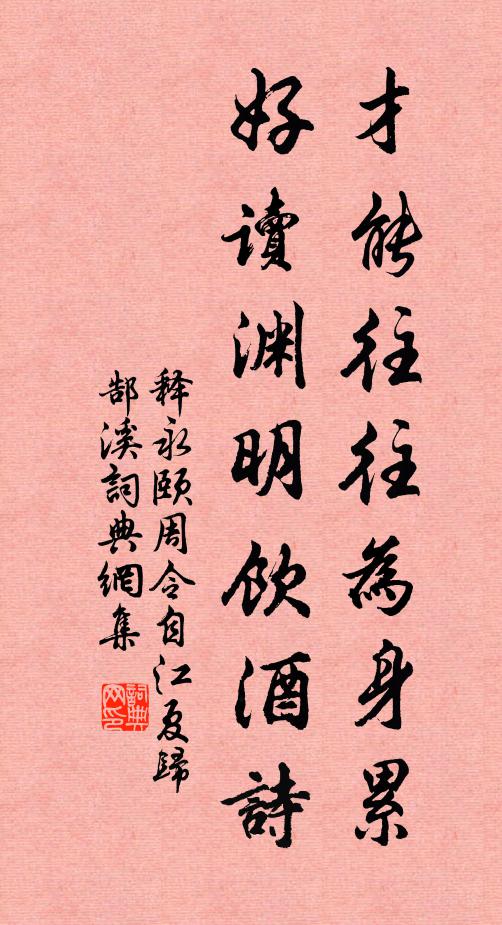 才能往往為身累
好讀渊明飲酒詩
释永頤周令自江夏歸
郜溪詞典網集
詞典網印